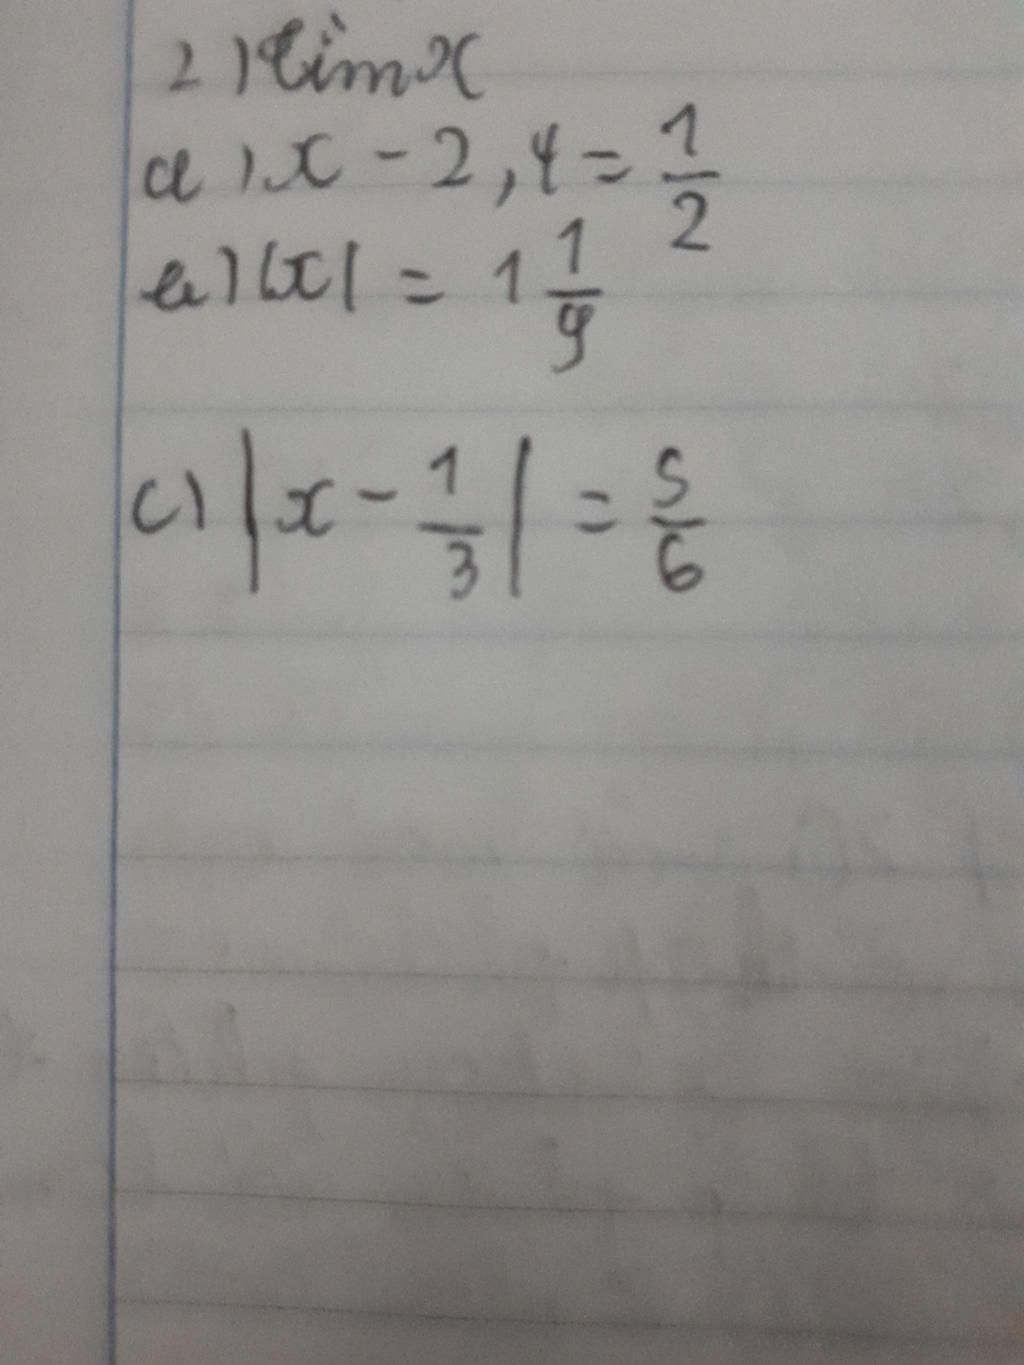 2) Tìm x
a) x - 2,4 = 1/2
b) |x| = 1 1/9
c) |x - 1/3| = 5/6